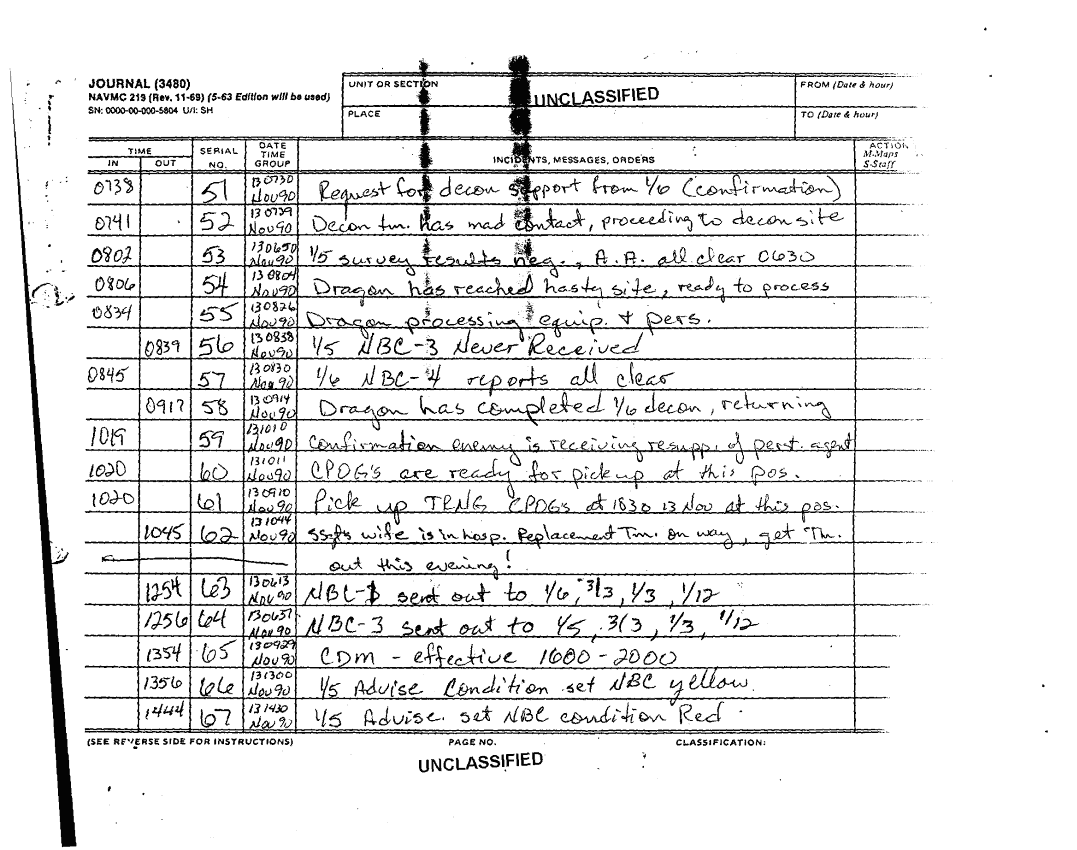 JOURNAL (3480)
NAVMC 219 (Rev. 11-69) (5-63 Edition will be used)
SN: 0000-00-000-5804 U/I: SH
UNIT OR SECTION
UNCLASSIFIED
FROM (Date & hour)
PLACE
TO (Date & hour)
TIME
IN OUT
SERIAL NO.
DATE TIME GROUP
INCIDENTS, MESSAGES, ORDERS
ACTION
M-Maps
S-Staff
0738 51 130730 Nov 90 Request for decon support from 1/6 (confirmation)
0741 52 130739 Nov 90 Decon tm. has mad contact, proceeding to decon site
0802 53 130650 Nov 90 1/5 survey results neg., A.A. all clear 0630
0806 54 130804 Nov 90 Dragon has reached hasty site, ready to process
0834 55 130826 Nov 90 Dragon processing equip. & pers.
0839 56 130838 Nov 90 1/5 NBC-3 Never Received
0845 57 130830 Nov 90 1/6 NBC-4 reports all clear
0917 58 130914 Nov 90 Dragon has completed 1/6 decon, returning
1019 59 131010 Nov 90 Confirmation enemy is receiving resupp. of perst. agent
1020 60 131011 Nov 90 CPOG's are ready for pickup at this pos.
1020 61 130910 Nov 90 Pick up TRNG CPOG's at 1830 13 Nov at this pos.
1045 62 131044 Nov 90 wife is in hosp. Replacement Tm. on way, get Tm.
out this evening!
1254 63 130613 Nov 90 sent out to 1/6, 3/3, 1/3, 1/12
1256 64 130637 Nov 90 NBC-3 sent out to 1/5, 3/3, 1/3, 1/12
1354 65 130929 Nov 90 CDM - effective 1600-2000
1356 66 131300 Nov 90 1/5 Advise Condition set NBC yellow.
1444 67 131430 Nov 90 1/5 Advise. set NBC condition Red
(SEE REVERSE SIDE FOR INSTRUCTIONS)
PAGE NO.
CLASSIFICATION:
UNCLASSIFIED